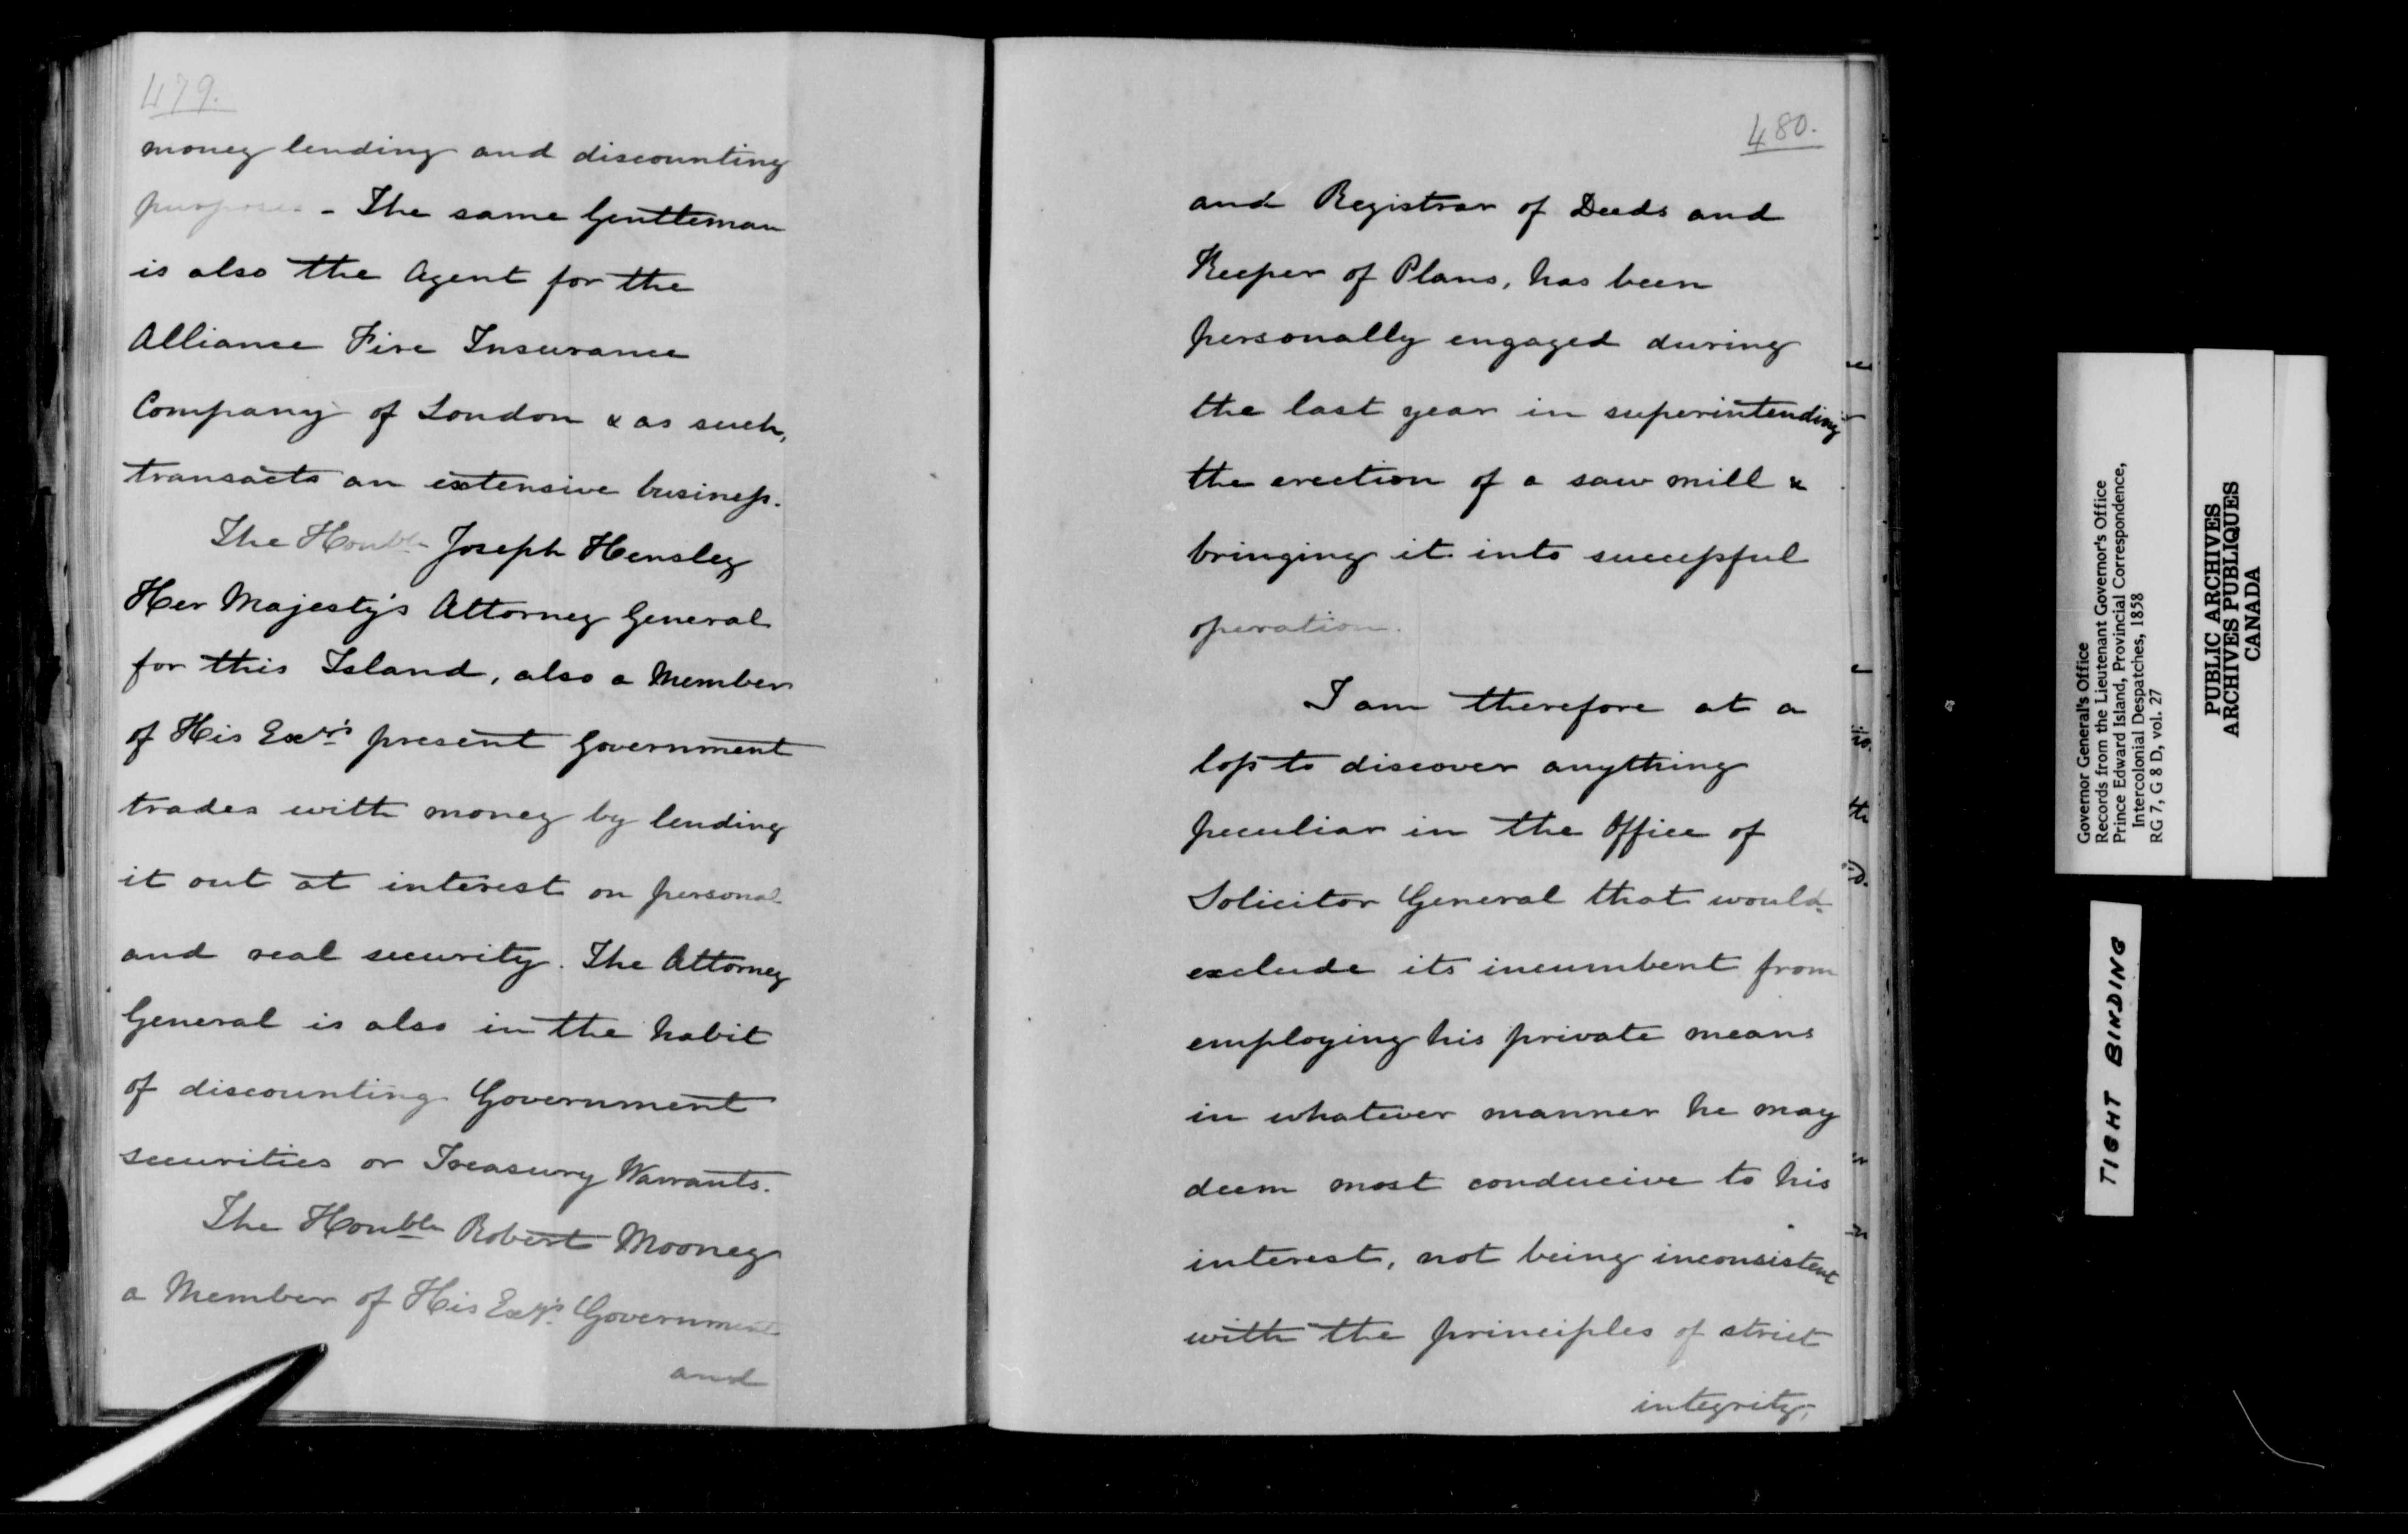 479.
money lending and discounting
purposes - The same Gentleman
is also the Agent for the
Alliance Fire Insurance
Company of London & as such,
transacts an extensive business.
The Honble Joseph Hensley
Her Majesty's Attorney General
for this Island, also a Member
of His Exy's present Government
trades with money by lending
it out at interest on personal
and real security. The Attorney
General is also in the habit
of discounting Government
securities or Treasury Warrants.
The Honble Robert Mooney
a Member of His Exy's Government
and
480.
and Registrar of Deeds and
Keeper of Plans, has been
personally engaged during
the last year in superintending
the erection of a saw mill &
bringing it into successful
operation.
I am therefore at a
loss to discover anything
peculiar in the Office of
Solicitor General that would
exclude its incumbent from
employing his private means
in whatever manner he may
deem most conducive to his
interest, not being inconsistent
with the principles of strict
integrity,
Governor General's Office
Records from the Lieutenant Governor's Office
Prince Edward Island, Provincial Correspondence,
Intercolonial Despatches, 1858
RG 7, G 8 D, vol. 27
PUBLIC ARCHIVES
ARCHIVES PUBLIQUES
CANADA
TIGHT BINDING